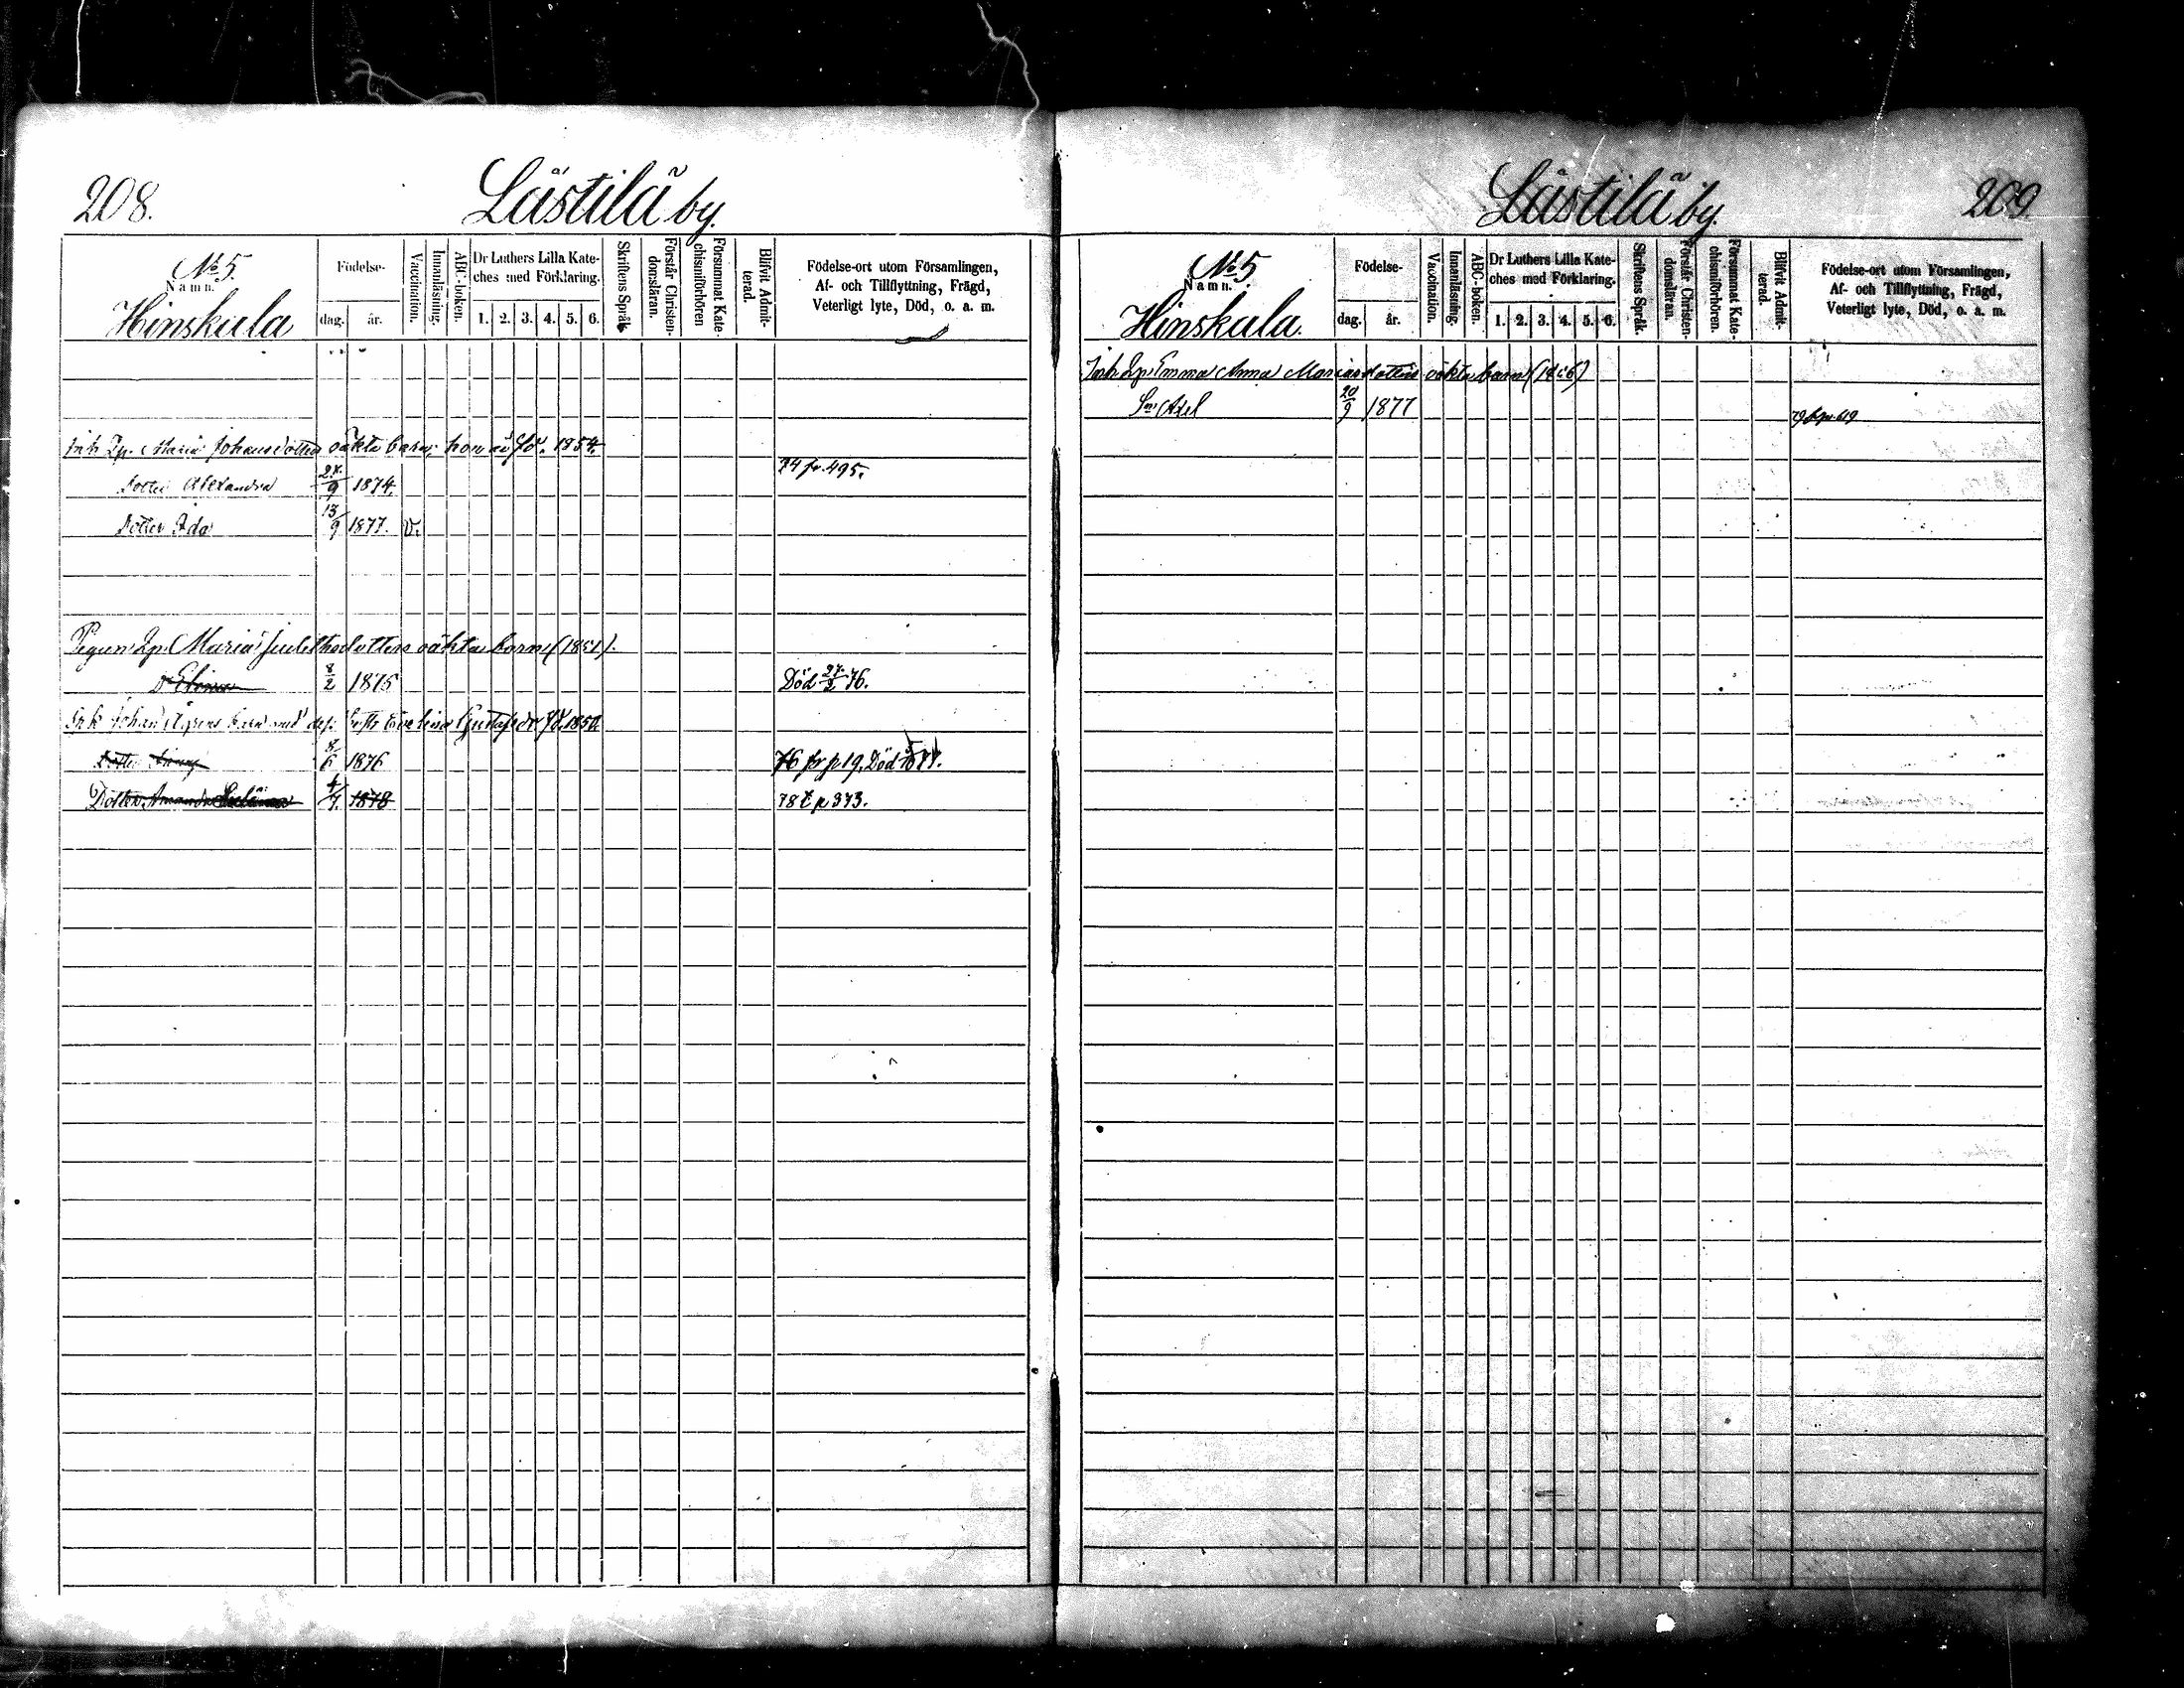 208.
Lästilä by.
No 5.
Namn.
Hinskala
Födelse-
dag. år.
Vaccination.
Innanläsning.
ABC-boken.
Dr Luthers Lilla Kate-
ches med Förklaring.
1. 2. 3. 4. 5. 6.
Skriftens Språk.
Förstår Christen-
domsläran.
Försummat Kate-
chismiförhören
Blifvit Admit-
terad.
Födelse-ort utom Församlingen,
Af- och Tillflyttning, Frägd,
Veterligt lyte, Död, o. a. m.
Inh Qp. Maria Johansdotters oäkta barn; hon är född. 1854.
Dotter Alexandra 27/9 1874. 74 fr. 495.
Dotter Ida 13/9 1877. v.
Pigan Qp. Maria dotters oäkta barn (1851).
D. Elina 8/2 1875 Död 27/2 76.
Inh Johan barn med Evelina Gustafsdr 1850.
Dotter Fanny 8/6 1876 76 fr p 19. Död
Dotter Amanda 4/7. 1878 78 t p 373.
Lästilä by.
209
No 5
Namn.
Hinskala.
Födelse-
dag. år.
Vaccination.
Innanläsning.
ABC-boken.
Dr Luthers Lilla Kate-
ches med Förklaring.
1. 2. 3. 4. 5. 6.
Skriftens Språk.
Förstår Christen-
domsläran.
Försummat Kate-
chismiförhören.
Blifvit Admit-
terad.
Födelse-ort utom Församlingen,
Af- och Tillflyttning, Frägd,
Veterligt lyte, Död, o. a. m.
Inh Qp Emma Anna Mariasdotters oäkta barn (1856)
Son Axel 20/9 1877